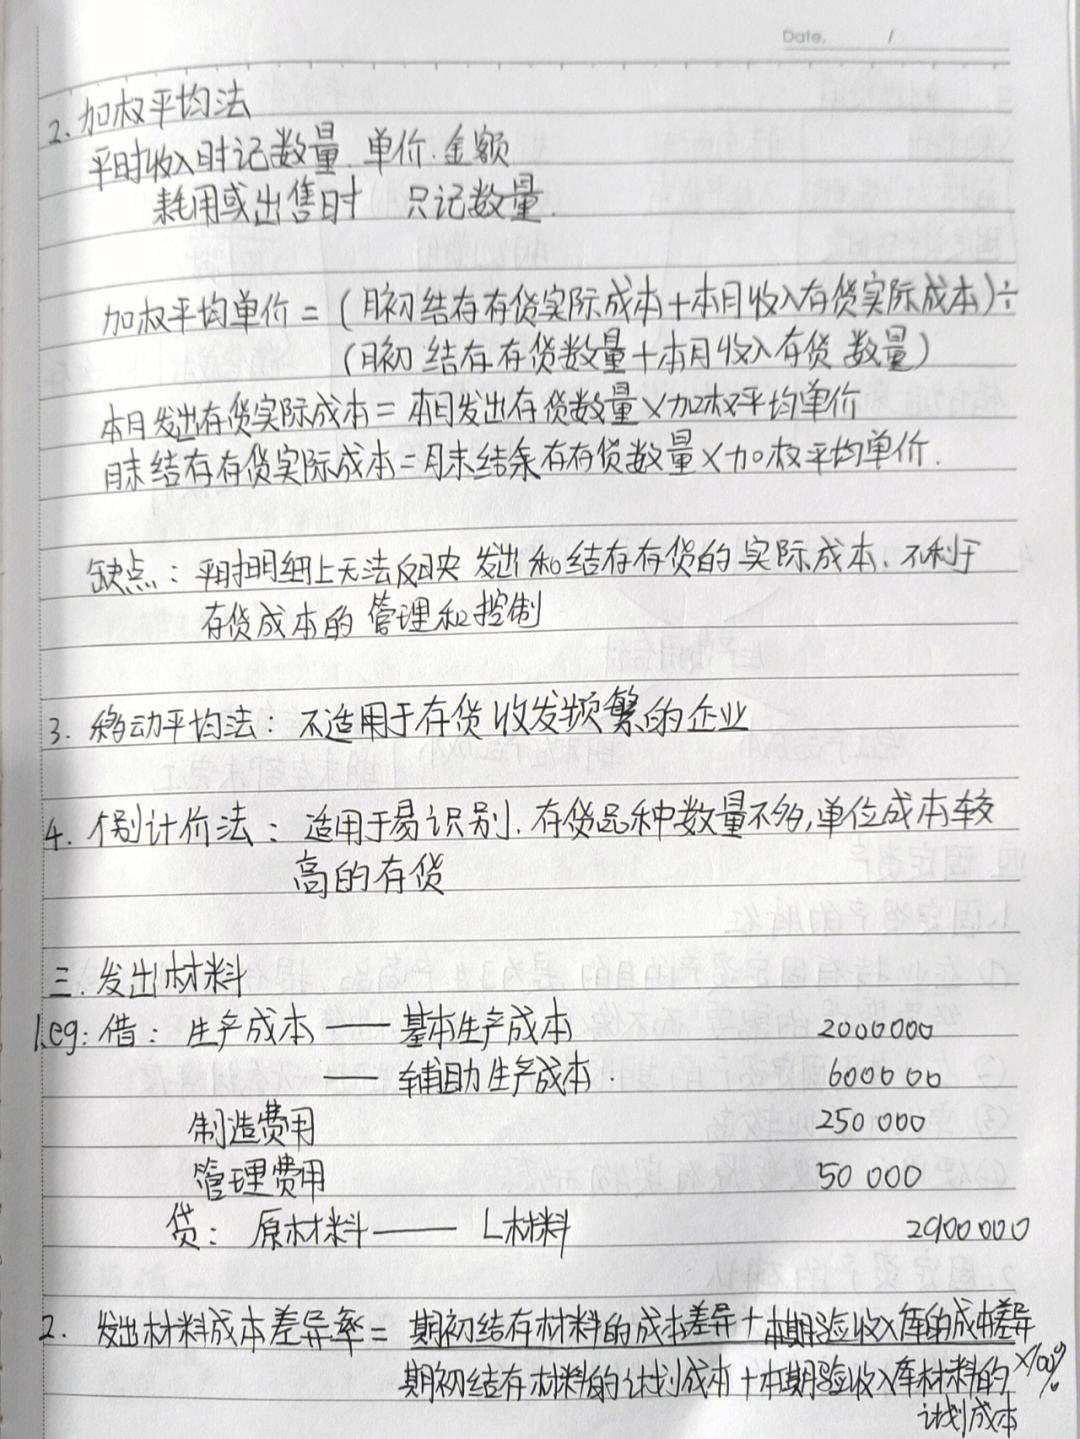 Date. /
2. 加权平均法
平时收入时记数量.单价.金额
耗用或出售时 只记数量.
加权平均单价=(月初结存存货实际成本+本月收入存货实际成本)÷
(月初结存存货数量+本月收入存货数量)
本月发出存货实际成本=本月发出存货数量×加权平均单价
月末结存存货实际成本=月末结余存存货数量×加权平均单价.
缺点:平时明细上无法反映发出和结存存货的实际成本.不利于
存货成本的管理和控制
3. 移动平均法:不适用于存货收发频繁的企业
4. 个别计价法:适用于易识别.存货品种数量不多,单位成本较
高的存货
三.发出材料
1.eg:借:生产成本——基本生产成本 2000000
——辅助生产成本. 600000
制造费用 250 000
管理费用 50 000
贷:原材料——L材料 2900000
2. 发出材料成本差异率=期初结存材料的成本差异+本期验收入库的成本差异
期初结存材料的计划成本+本期验收入库材料的 ×100%
计划成本